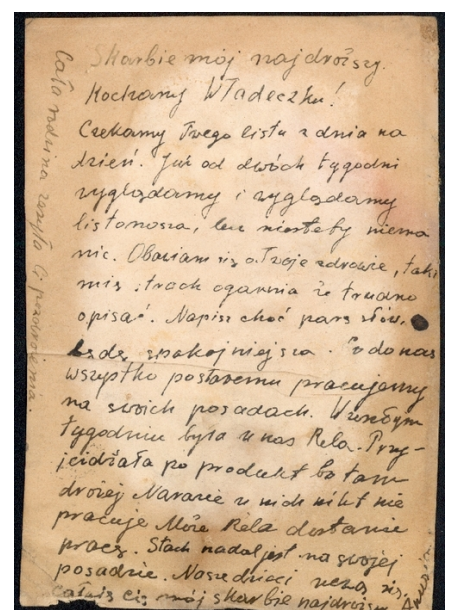 Skarbie mój najdroższy.
Kochany Władeczku!
Czekamy Twego listu z dnia na
dzień. Już od dwóch tygodni
wyglądamy i wyglądamy
listonosza, lecz niestety niema
nic. Obawiam się o Twoje zdrowie, taki
mię strach ogarnia że trudno
opisać. Napisz choć parę słów,
będę spokojniejsza. Co do nas
wszystko postaremu pracujemy
na swoich posadach. W zeszłym
tygodniu była u nas Rela. Przy-
jeżdżała po produkt bo tam
drożej Narazie u nich nikt nie
pracuje Może Rela dostanie
pracę. Stach nadal jest na swojej
posadzie. Nasze dzieci uczą się.
Całuję cię mój skarbie najdroższy
Cała rodzina zasyła Ci pozdrowienia.